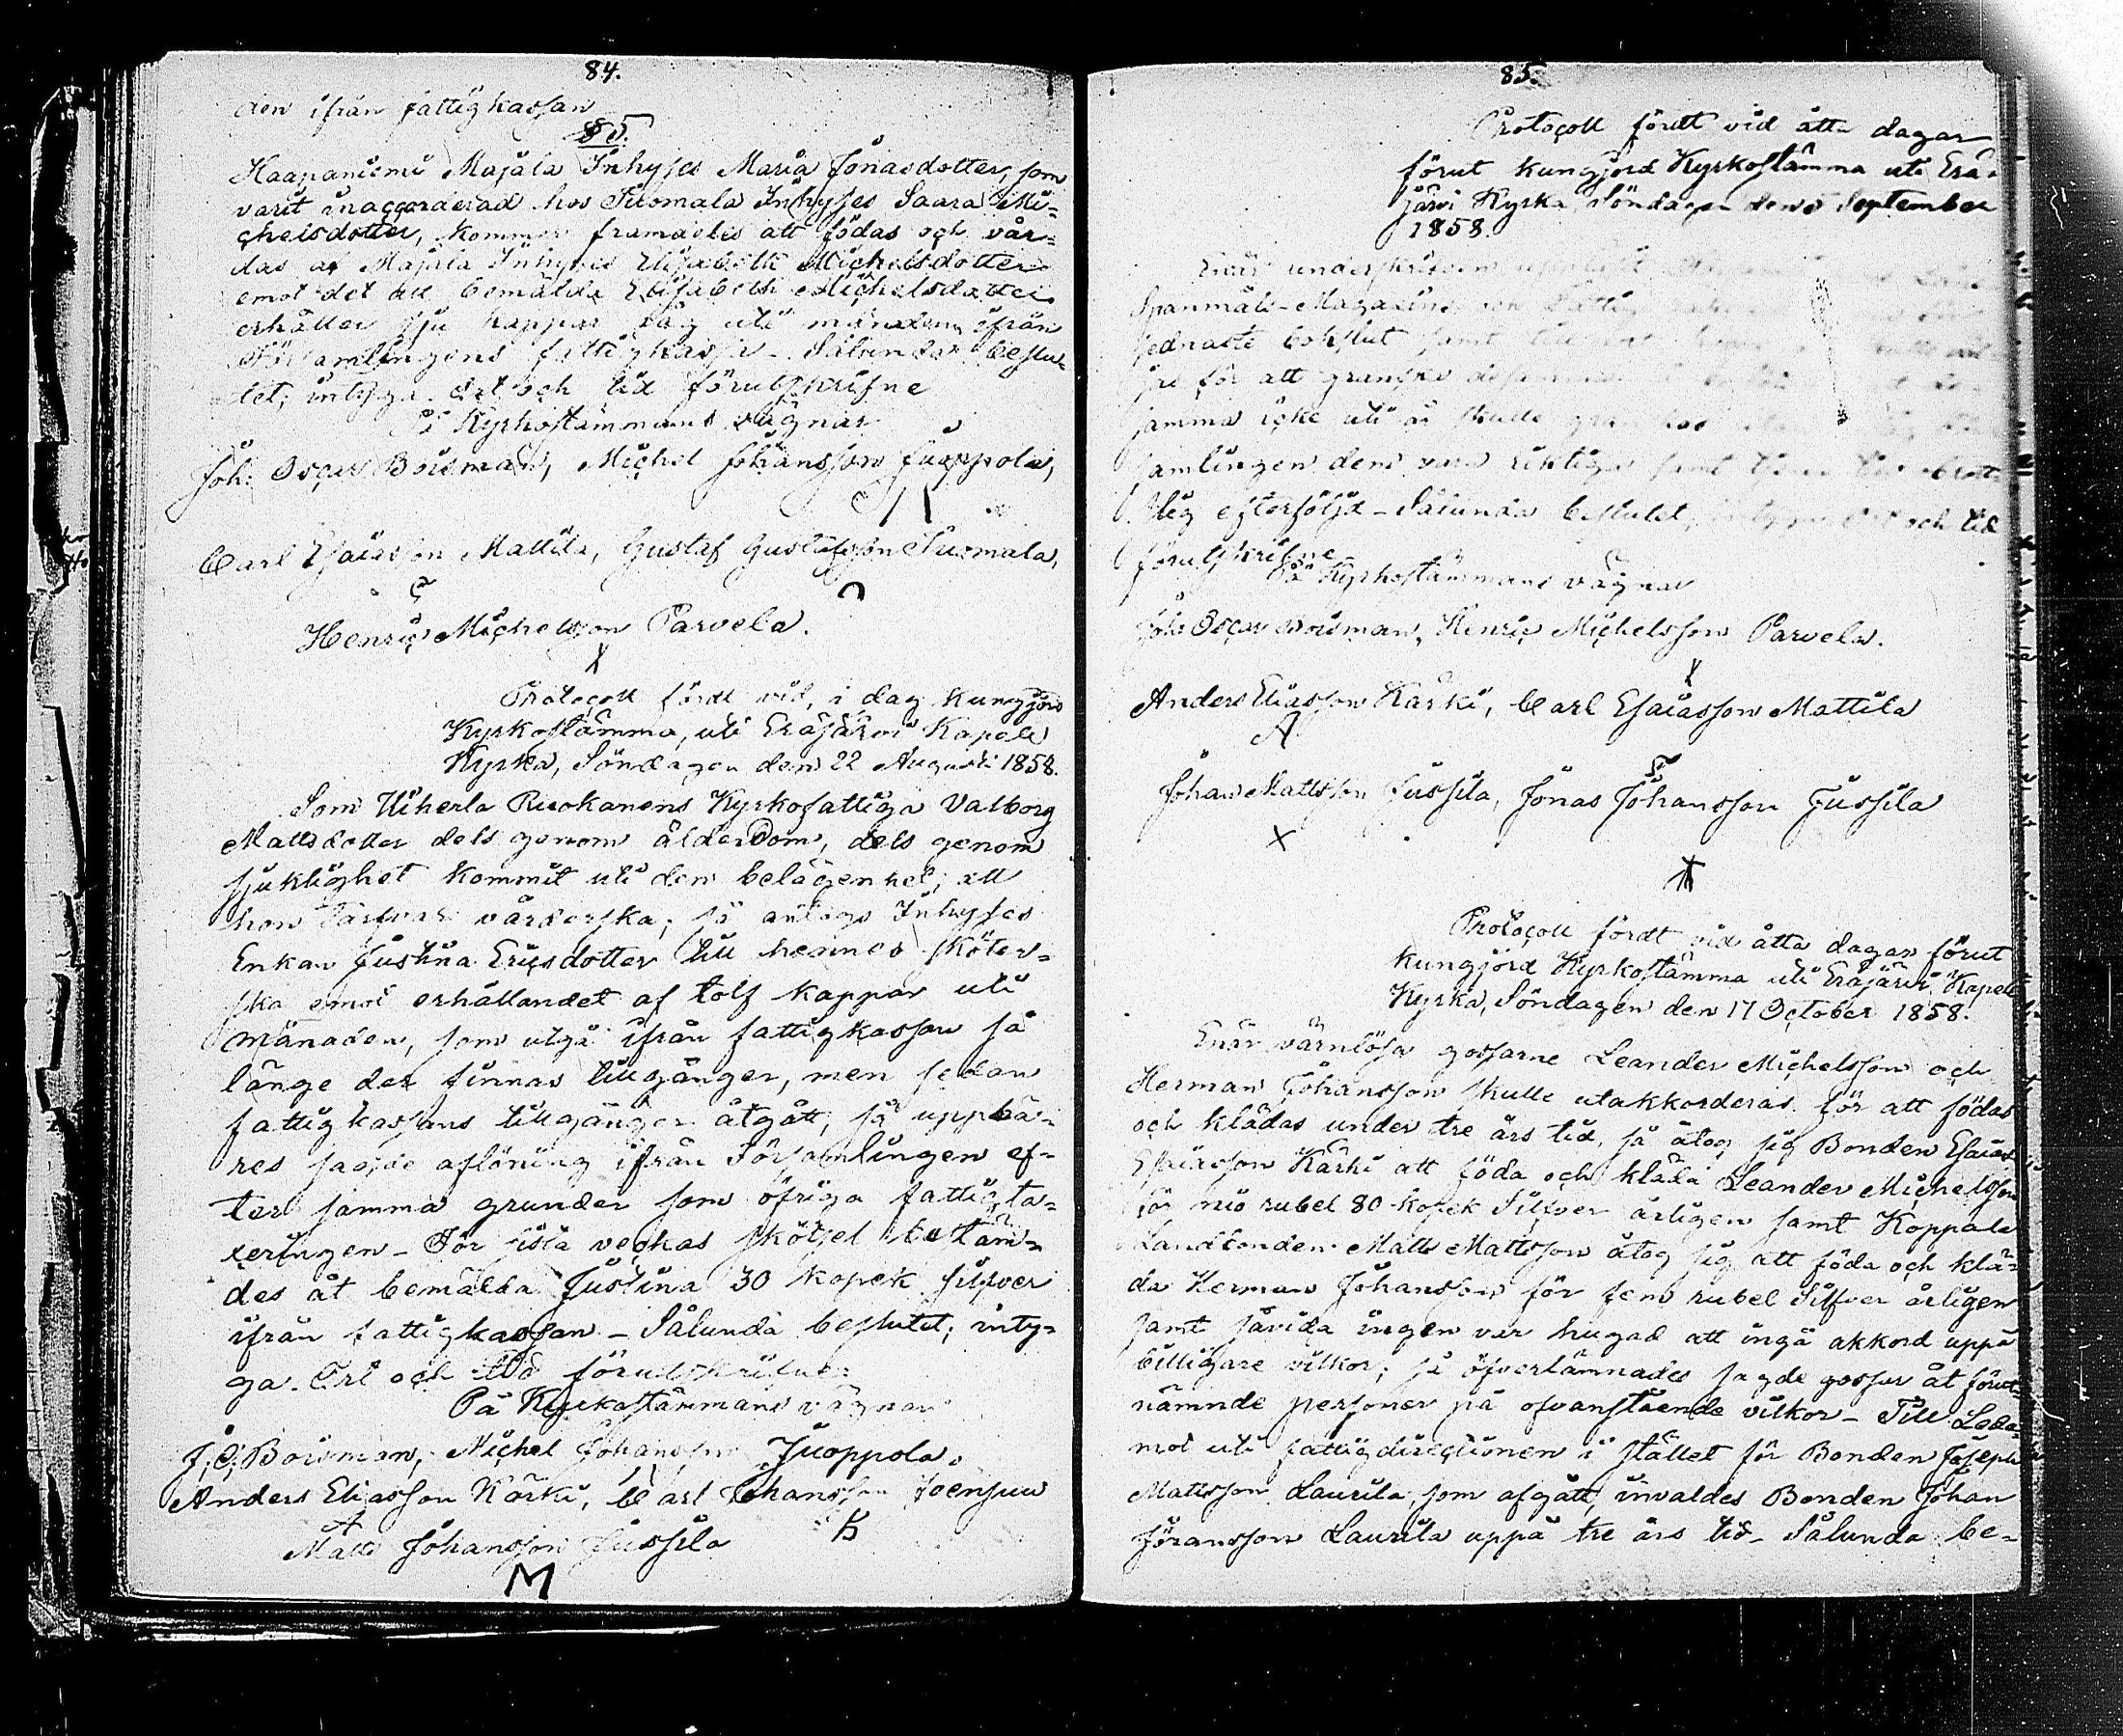 84.
den ifrån fattigkassan
§ 5.
Haapaniemi Majala Inhyses Maria Jonasdotter, som
varit inaccorderad hos Tuomala Inhyses Saara Mi-
chelsdotter, kommer framdeles att födas och vår-
das af Majala Inhyses Elisabeth Michelsdotter
emot det att bemälda Elisabeth Michelsdotter
erhåller sju kappar råg uti månaden ifrån
Församlingens fattigkassa - Sålunda beslu-
tet; intyga. Ort och tid förutskrifne
På Kyrkostämmans vägnar
Joh: Oscar Boisman, Michel Johansson Juoppola,
Carl Esaiasson Mattila, Gustaf Gustafsson Tuomala,
Henric Michelsson Parvela.
Protocoll fördt vid, i dag kungjord
Kyrkostämma, uti Eräjärvi Kapell
Kyrka, Söndagen den 22 Augusti 1858.
Som Uiherla Ruokanens Kyrkofattiga Valborg
Mattsdotter dels genom ålderdom, dels genom
sjuklighet kommit uti den belägenhet, att
hon tarfvar vårderska; så antogs Inhyses
Enkan Justina Ericsdotter till hennes sköter-
ska emot erhållandet af tolf kappar uti
månaden, som utgå ifrån fattigkassan så
länge der finnas tillgånger, men sedan
fattigkassans tillgångar åtgått, så uppbä-
res sagde aflöning ifrån Församlingen ef-
ter samma grunder som öfriga fattigta-
xeringen - För sista veckas skötsel bestäm-
des åt bemälda Justina 30 kopek silfver
ifrån fattigkassan - Sålunda beslutet; inty-
ga. Ort och tid förutskrifne.
På Kyrkostämmans vägnar
J: O: Boisman, Michel Johansson Juoppola.
Anders Eliasson Kärki, Carl Johansson Joensuu
A
Matts Johansson Jussila
M
85.
Protocoll fördt vid åtta dagar
förut kungjord Kyrkostämma uti Erä-
järvi Kyrka Söndagen den 5 September
1858.
Enär underskrifven
Spanmåls-Magasins
sednaste bokslut samt
för att granska
samma icke uti
samlingen dem vara riktiga samt
lig efterföljd - Sålunda beslutet, intyga Ort och tid
förutskrifne
På Kyrkostämmans vägnar
Joh: Oscar Boisman, Henric Michelsson Parvela.
Anders Eliasson Kärki, Carl Esaiasson Mattila
A
Johan Mattsson Jussila, Jonas Johansson Jussila
Protocoll fördt vid åtta dagar förut
kungjord Kyrkostämma uti Eräjärvi Kapell
Kyrka, Söndagen den 17 October 1858.
Enär värnlösa gossarne Leander Michelsson och
Herman Johansson skulle utakkorderas för att födas
och klädas under tre års tid, så åtog sig Bonden Esaias
Esaiasson Kärki att föda och kläda Leander Michelsson
för nio rubel 80 kopek Silfver årligen samt Koppala
Landbonden Matts Mattsson åtog sig att föda och klä-
da Herman Johansson för fem rubel Silfver årligen
samt såvida ingen var hugad att ingå akkord uppå
billigare vilkor; så öfverlämnades sagde gossar åt förut-
nämnde personer på ofvanstående vilkor - Till Leda-
mot uti fattigdirectionen i stället för Bonden Joseph
Mattsson Laurila, som afgått, invaldes Bonden Johan
Jöransson Laurila uppå tre års tid - Sålunda be-